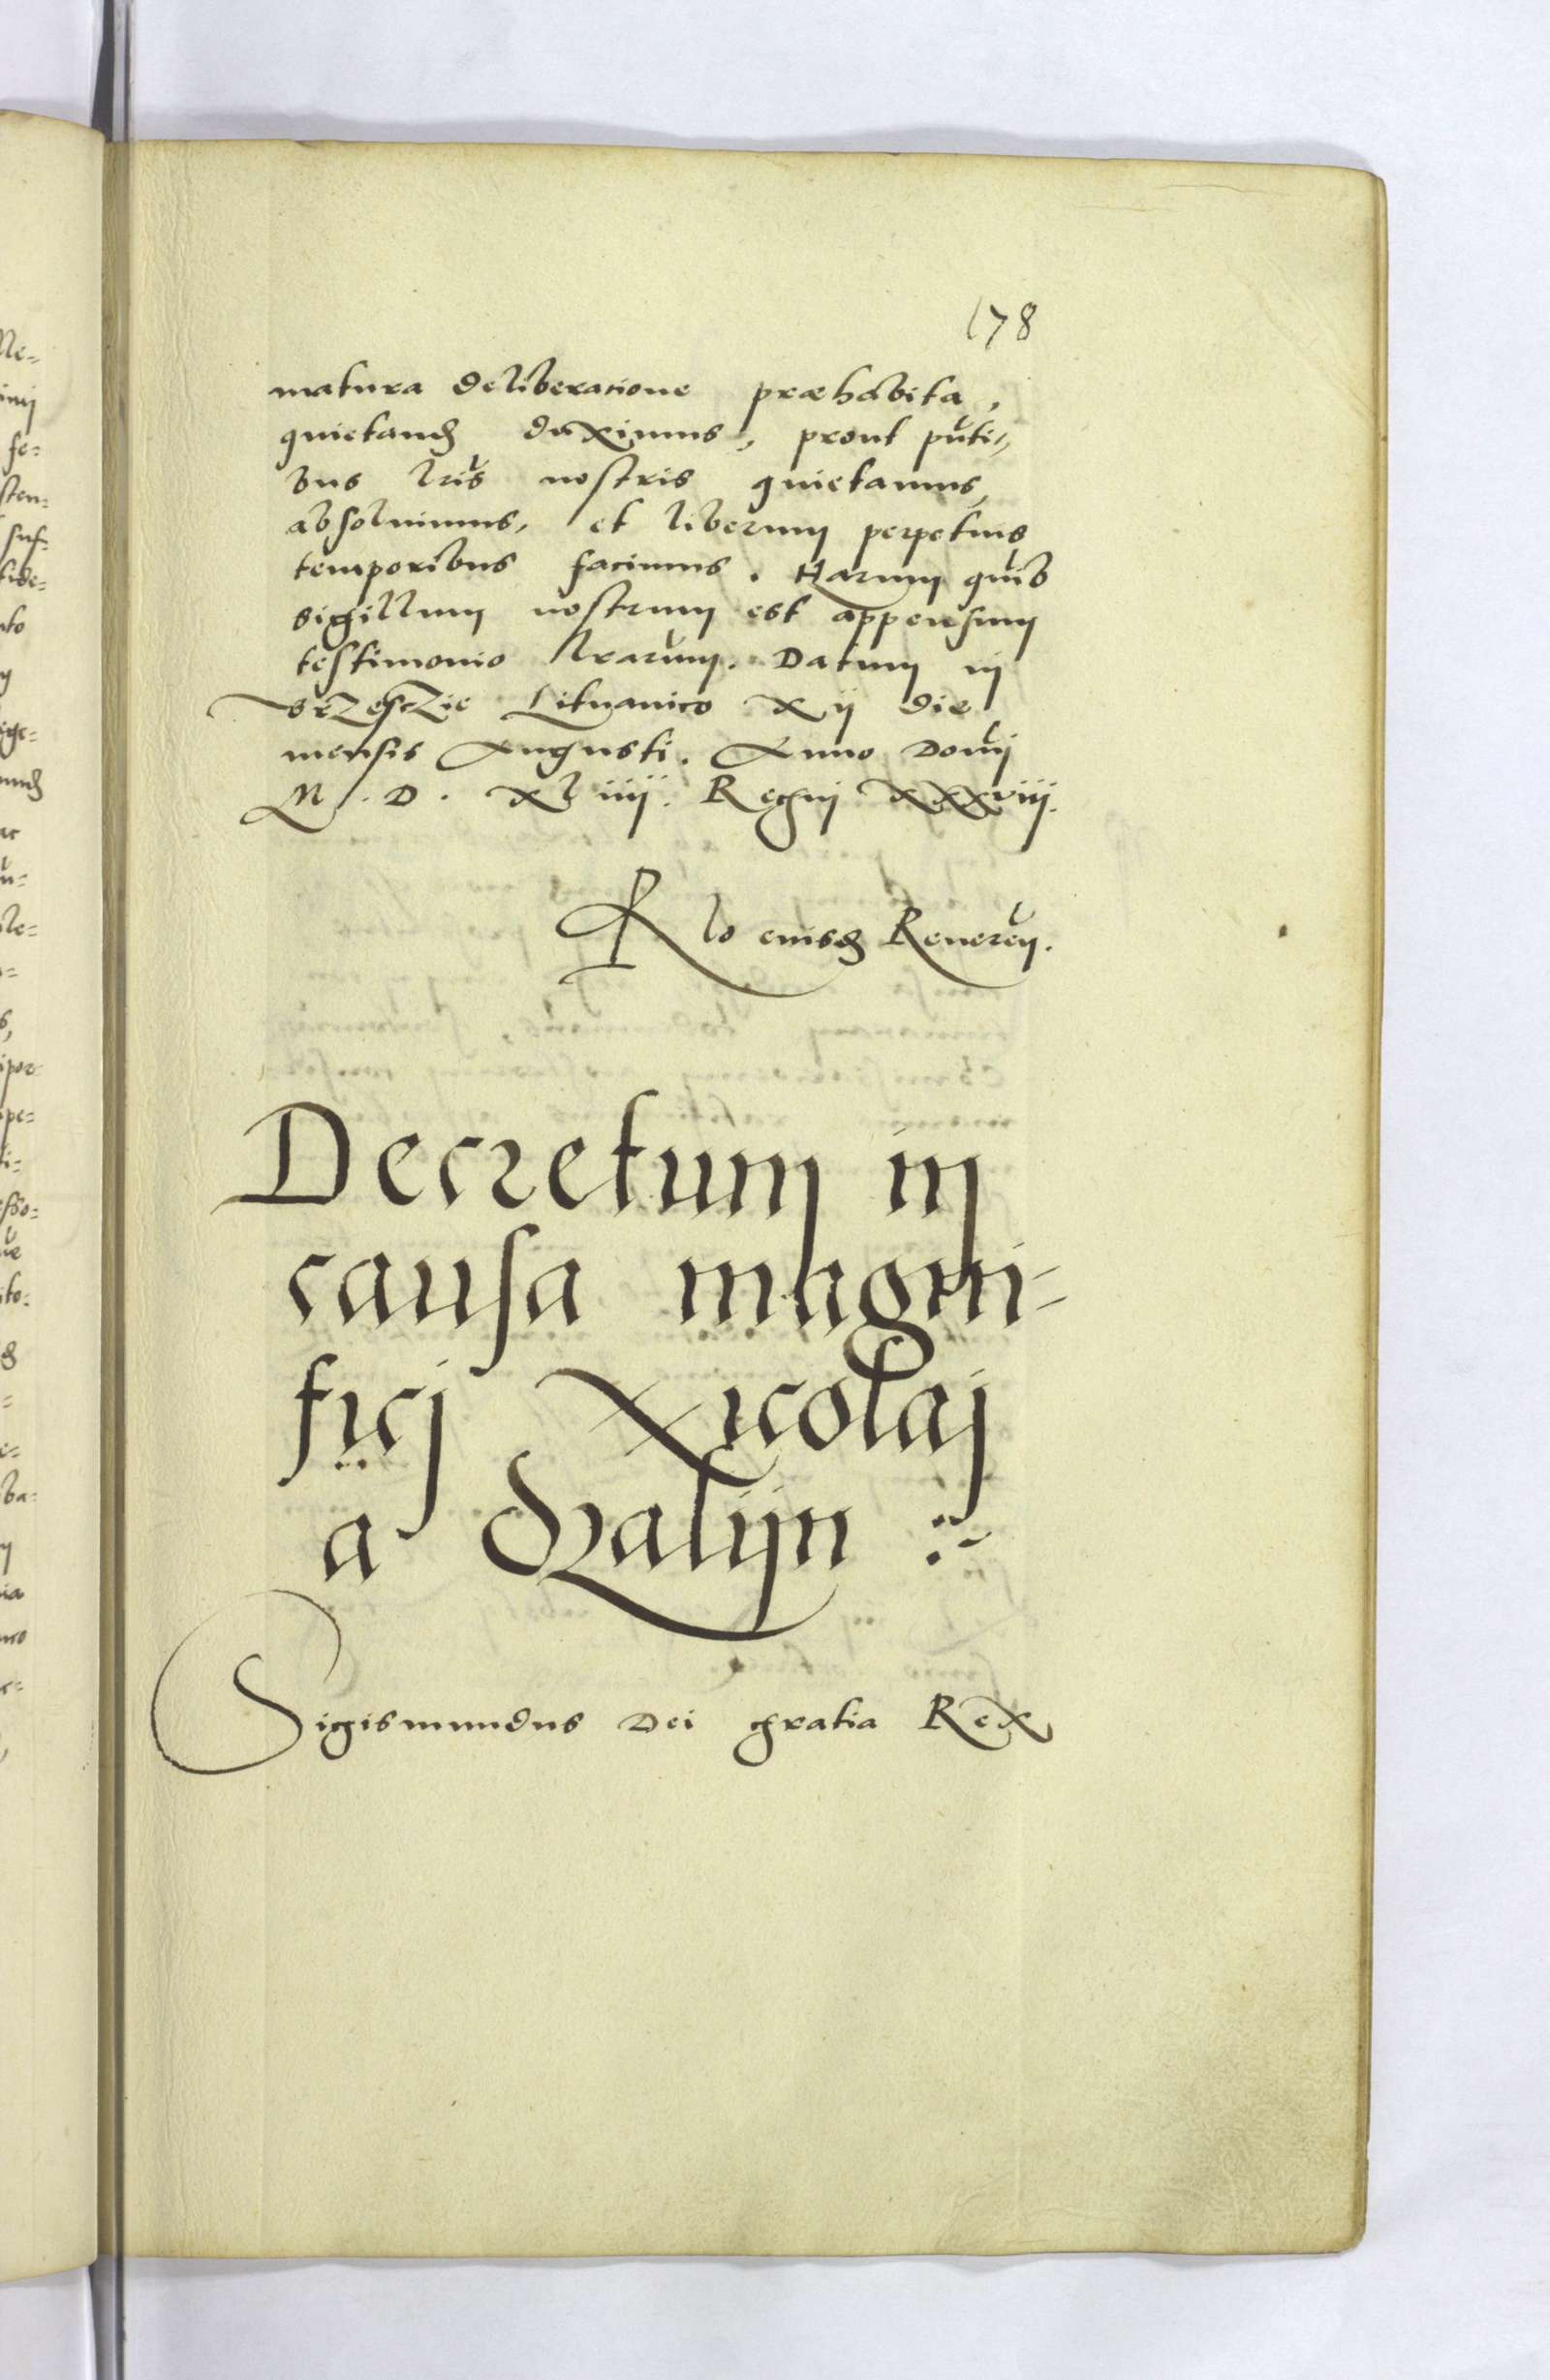 178
matura deliberatione præhabita,
quietand duximus, prout pnti„
bus lris nostris quietamus,
absoluimus, et liberum perpetuis
temporibus facimus. Harum quib
sigillum nostrum est appensum
testimonio lrarum. Datum in
Brzesczie Lituanico xij die
mensis Augusti. Anno Domi
M. D. xliiij. Regni xxxviij.
Rlo eiusd Reueren.
Decretum in
causa magni-
fici Nicolai
a Dzalijn
Sigismundus Dei gratia Rex